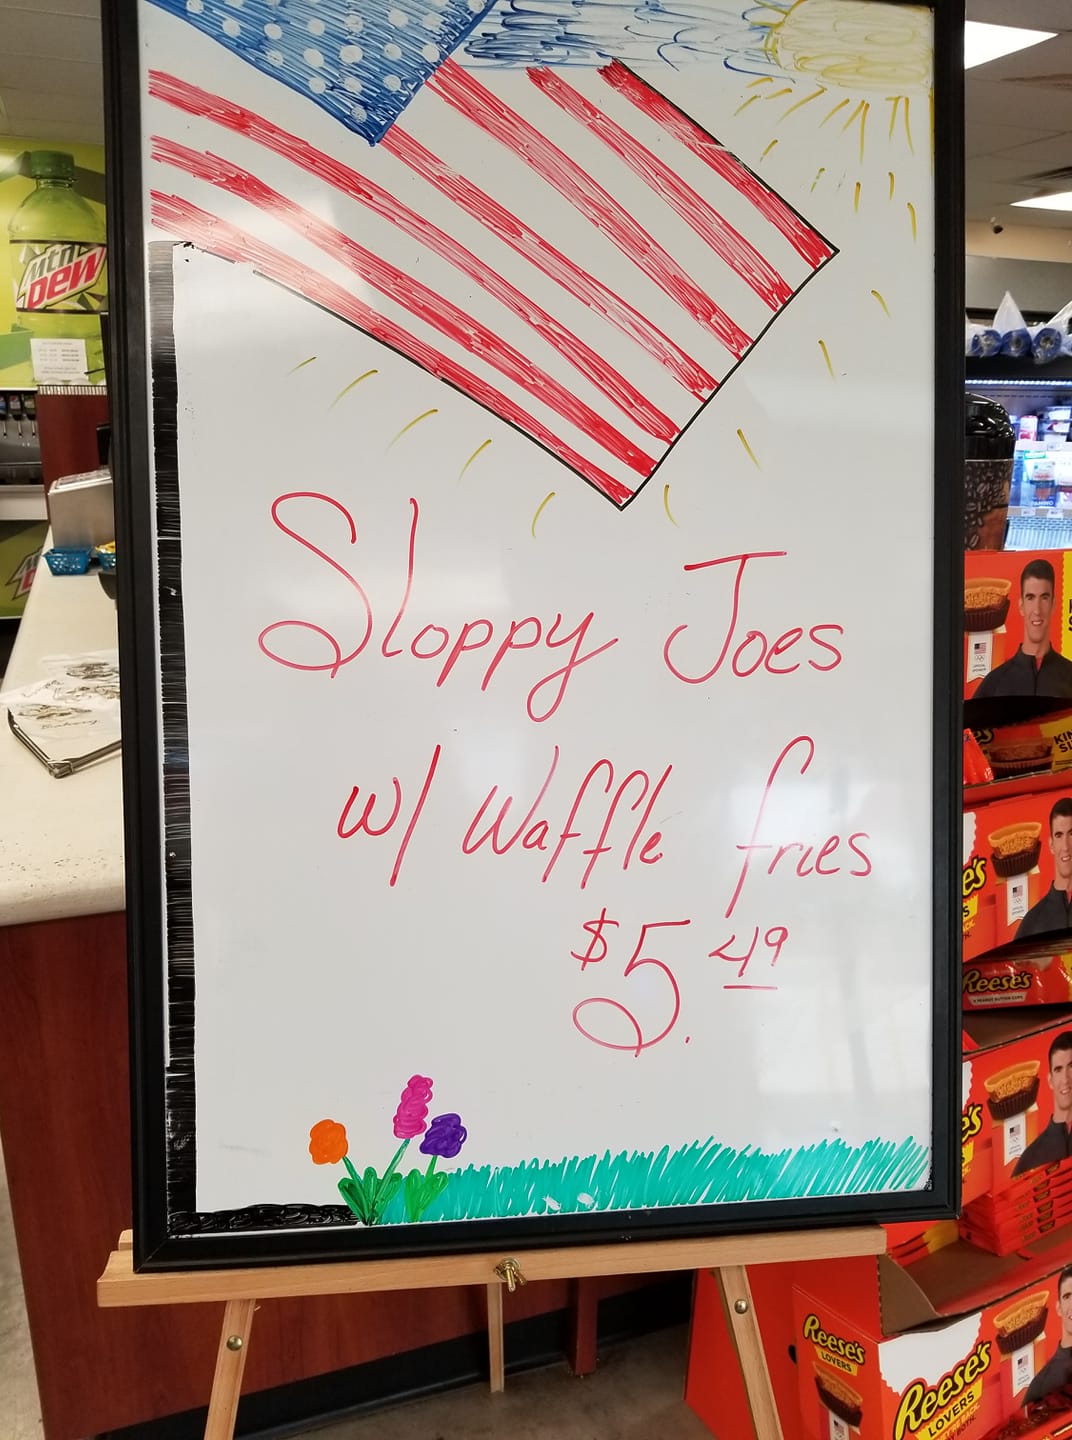 Sloppy Joes
w/ Waffle fries
$5.49
Mtn
Dew
KING
SIZE
Reese's
Reese's
LOVERS
Reese's
LOVERS